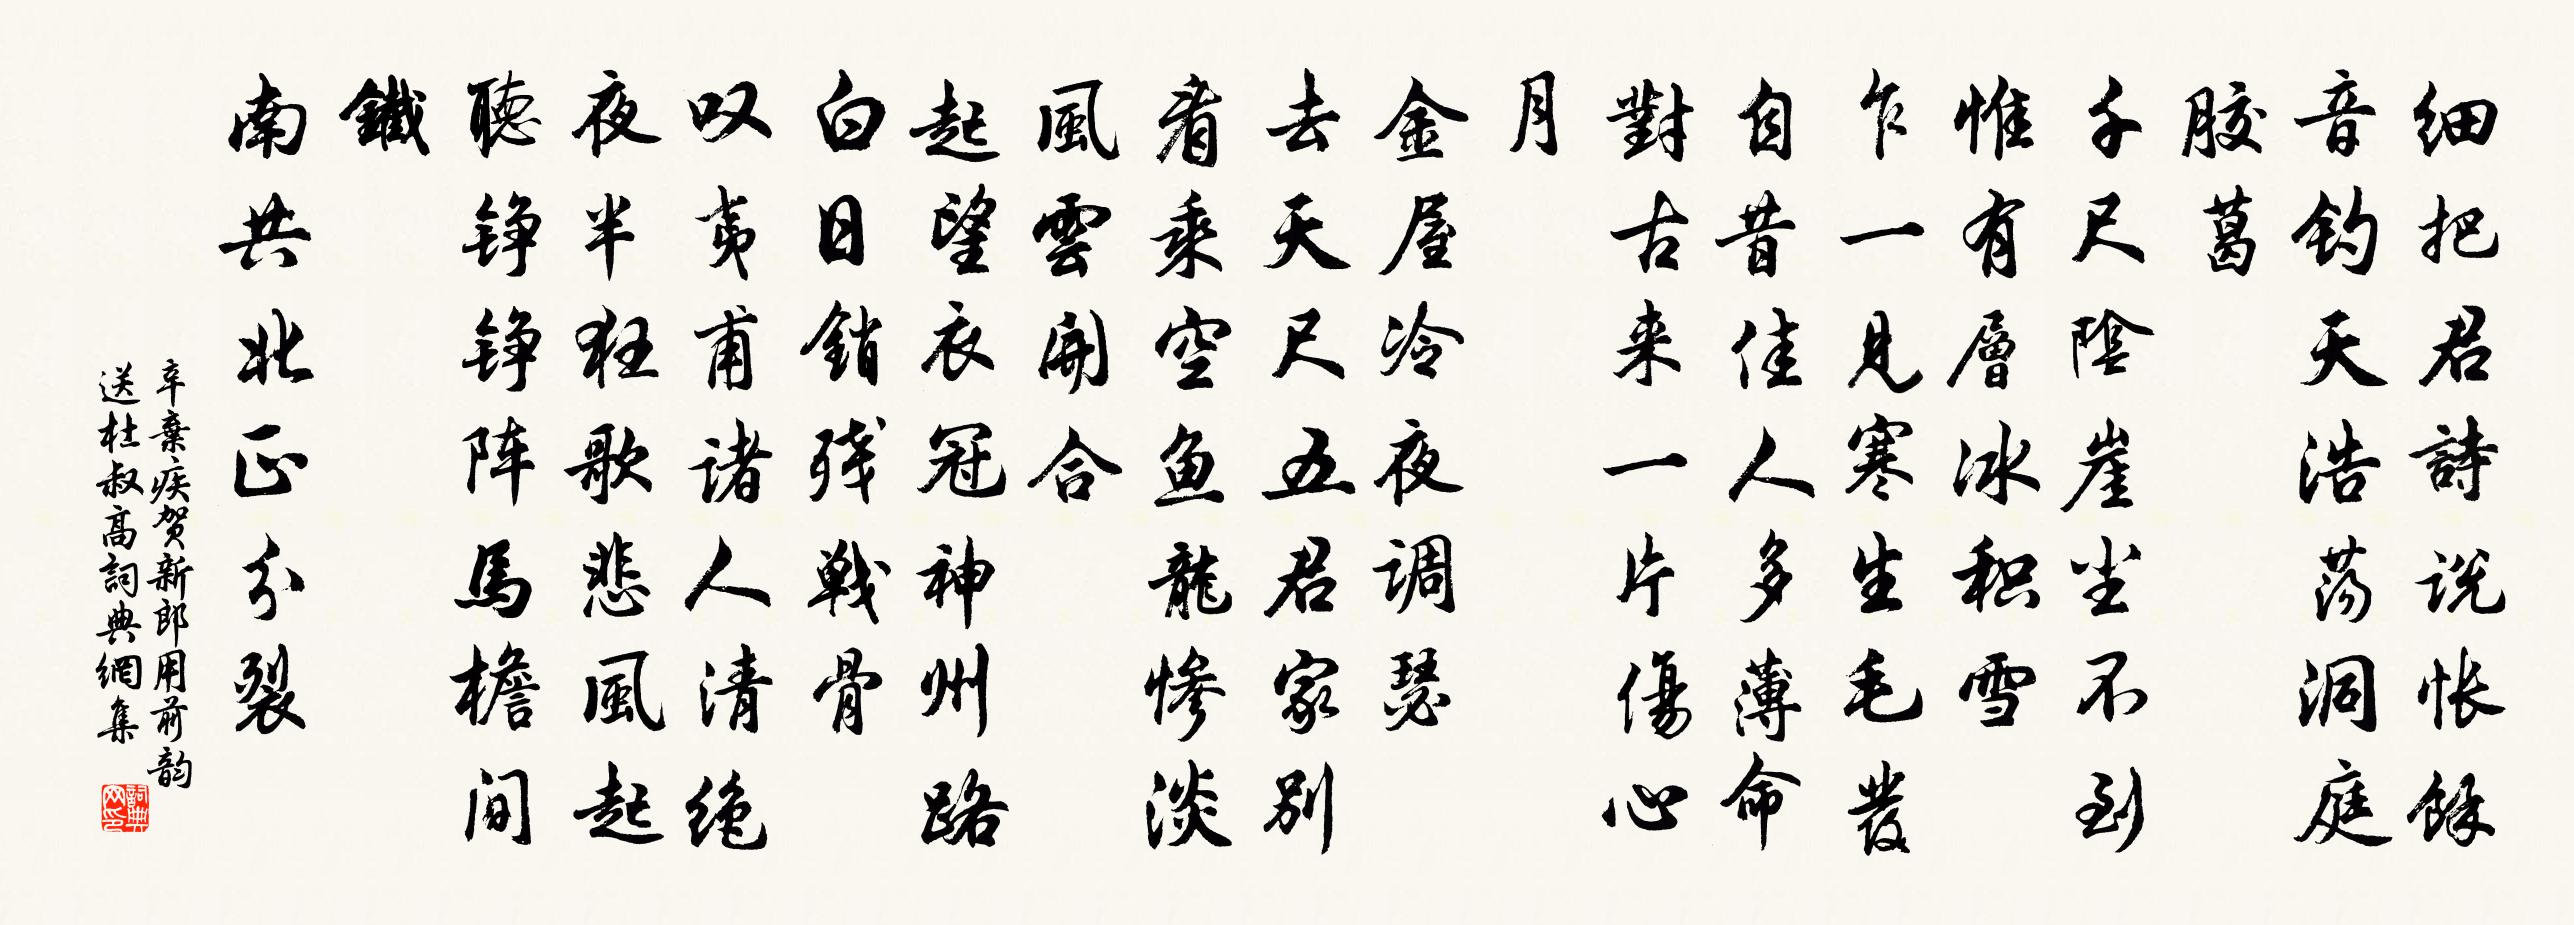 细把君詩说怅餘
音钧天浩荡洞庭
胶葛
千尺陰崖尘不到
惟有層冰积雪
乍一見寒生毛發
自昔佳人多薄命
對古来一片傷心
月
金屋冷夜调瑟
去天尺五君家别
看乘空鱼龍惨淡
風雲開合
起望衣冠神州路
白日銷残戰骨
叹夷甫诸人清绝
夜半狂歌悲風起
聴铮铮阵馬檐间
鐵
南共北正分裂
辛棄疾贺新郎用前韵
送杜叔高詞典網集
詞典网印